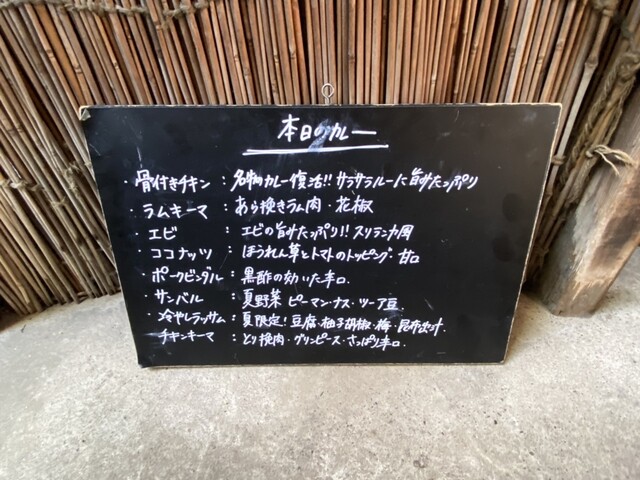 本日のカレー
・骨付きチキン：名物カレー復活!! サラサラルーに旨みたっぷり
・ラムキーマ：あら挽きラム肉・花椒
・エビ：エビの旨みたっぷり!! スリランカ風
ココナッツ：ほうれん草とトマトのトッピング・甘口
ポークビンダル：黒酢の効いた辛口
・サンバル：夏野菜 ピーマン・ナス・ツーア豆
・冷やしラッサム：夏限定! 豆腐・柚子胡椒・梅・昆布出汁
チキンキーマ：とり挽肉・グリンピース・さっぱり辛口